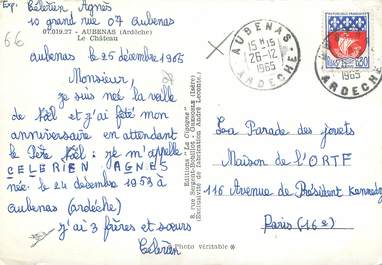 Exp: Célerien Agnès
10 grand rue 07 Aubenas
66
07.019.27 - AUBENAS (Ardèche)
Le Château
Aubenas le 25 décembre 1965
Monsieur,
je suis née la veille
de Noël et j'ai fêté mon
anniversaire en attendant
le Père Noël: je m'appelle
CELERIEN AGNES
née: le 24 décembre 1953 à
Aubenas (ardèche)
j'ai 3 frères et sœurs
Célerien
® Photo véritable ®
Editions "La Cigogne"
8, rue Sergent-Bobillot - GRENOBLE (Isère)
(Exclusivité de fabrication André Leconte.)
AUBENAS
15H15
26-12
1965
ARDECHE
REPUBLIQUE FRANÇAISE
0,30
1965
ARDECHE
La Parade des jouets
Maison de l'ORTF
116 Avenue de Président Kennedy
Paris (16e)